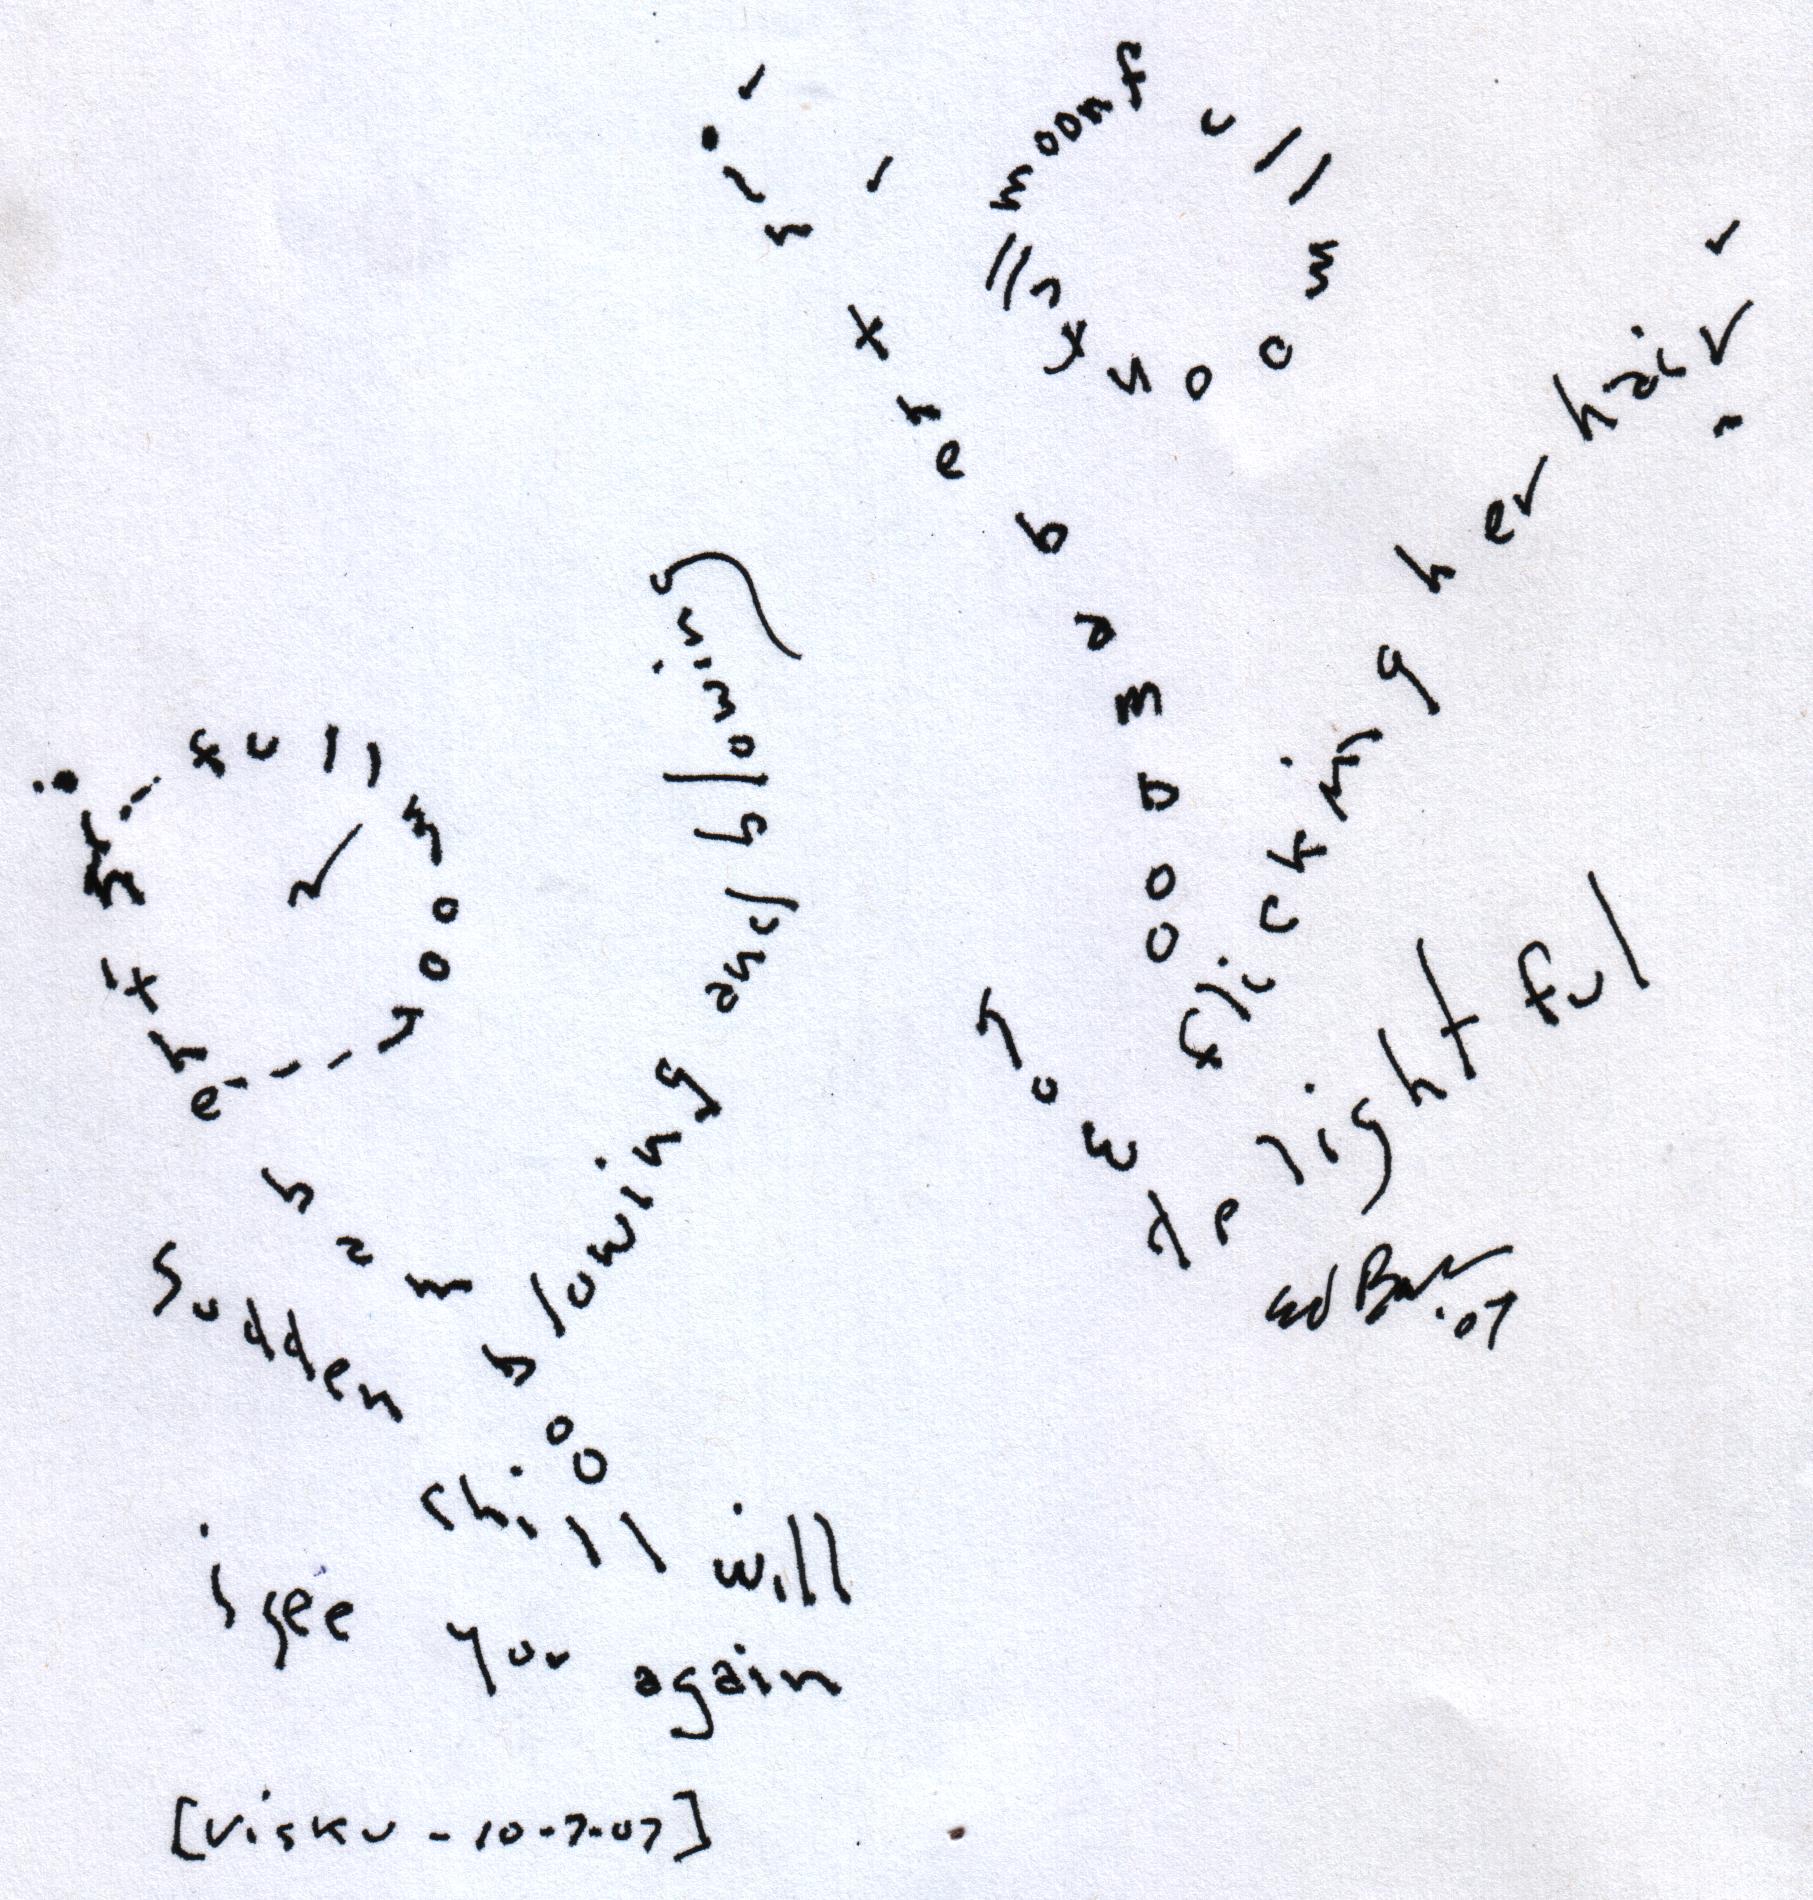 full moon
in the bamboo
blowing and glowing
sudden chill will
i see you again
[Visku - 10.7.07]
full moon full moon
in the bamboo
flicking her hair
how delightful
ed Baker .07